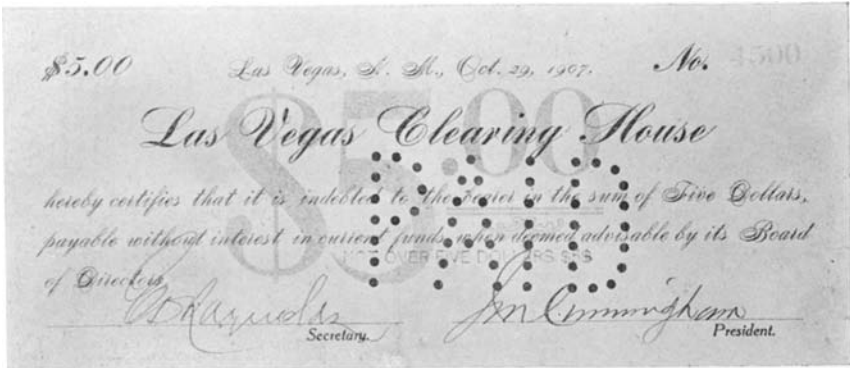 $5.00 Las Vegas, N. M., Oct. 29, 1907. No. 4500
$5.00
Las Vegas Clearing House
hereby certifies that it is indebted to the bearer in the sum of Five Dollars,
payable without interest in current funds when deemed advisable by its Board
of Directors.
NOT OVER FIVE DOLLARS $5$
PAID
Secretary. President.